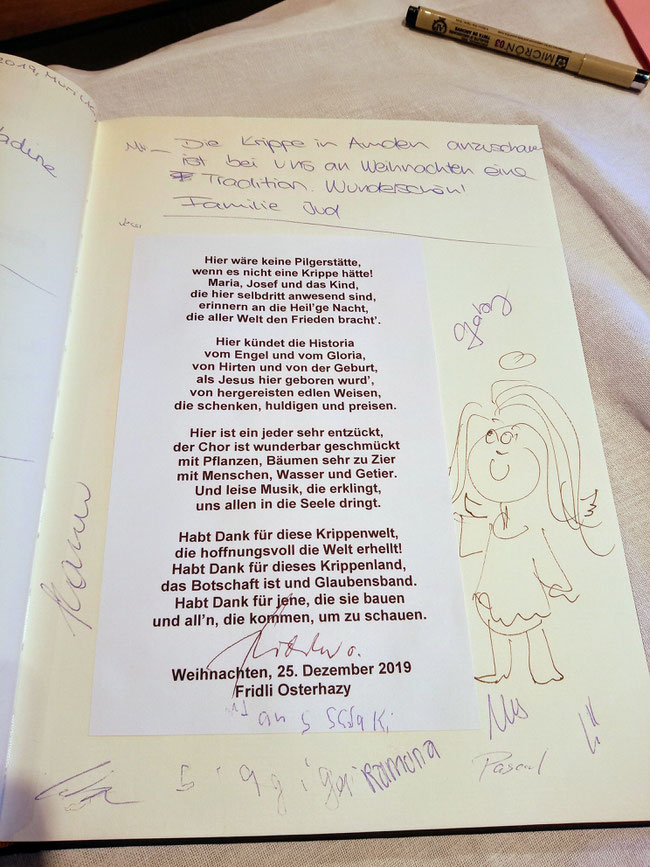 2019, Muri
MICRON 03
Die Krippe in Amden anzuschauen
ist bei uns an Weihnachten eine
Tradition. Wunderschön!
Familie Jud
Hier wäre keine Pilgerstätte,
wenn es nicht eine Krippe hätte!
Maria, Josef und das Kind,
die hier selbdritt anwesend sind,
erinnern an die Heil'ge Nacht,
die aller Welt den Frieden bracht'.
Hier kündet die Historia
vom Engel und vom Gloria,
von Hirten und von der Geburt,
als Jesus hier geboren wurd',
von hergereisten edlen Weisen,
die schenken, huldigen und preisen.
Hier ist ein jeder sehr entzückt,
der Chor ist wunderbar geschmückt
mit Pflanzen, Bäumen sehr zu Zier
mit Menschen, Wasser und Getier.
Und leise Musik, die erklingt,
uns allen in die Seele dringt.
Habt Dank für diese Krippenwelt,
die hoffnungsvoll die Welt erhellt!
Habt Dank für dieses Krippenland,
das Botschaft ist und Glaubensband.
Habt Dank für jene, die sie bauen
und all'n, die kommen, um zu schauen.
Weihnachten, 25. Dezember 2019
Fridli Osterhazy
Gaby
Ramona
Pascal